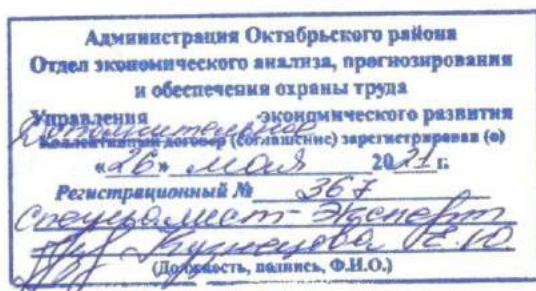 Администрация Октябрьского района
Отдел экономического анализа, прогнозирования
и обеспечения охраны труда
Управления -экономического развития
Дополнительное
Коллективный договор (соглашение) зарегистрирован (о)
«26» мая 2021 г.
Регистрационный № 367
Специалист-эксперт
Кузнецова Е.Ю.
(Должность, подпись, Ф.И.О.)